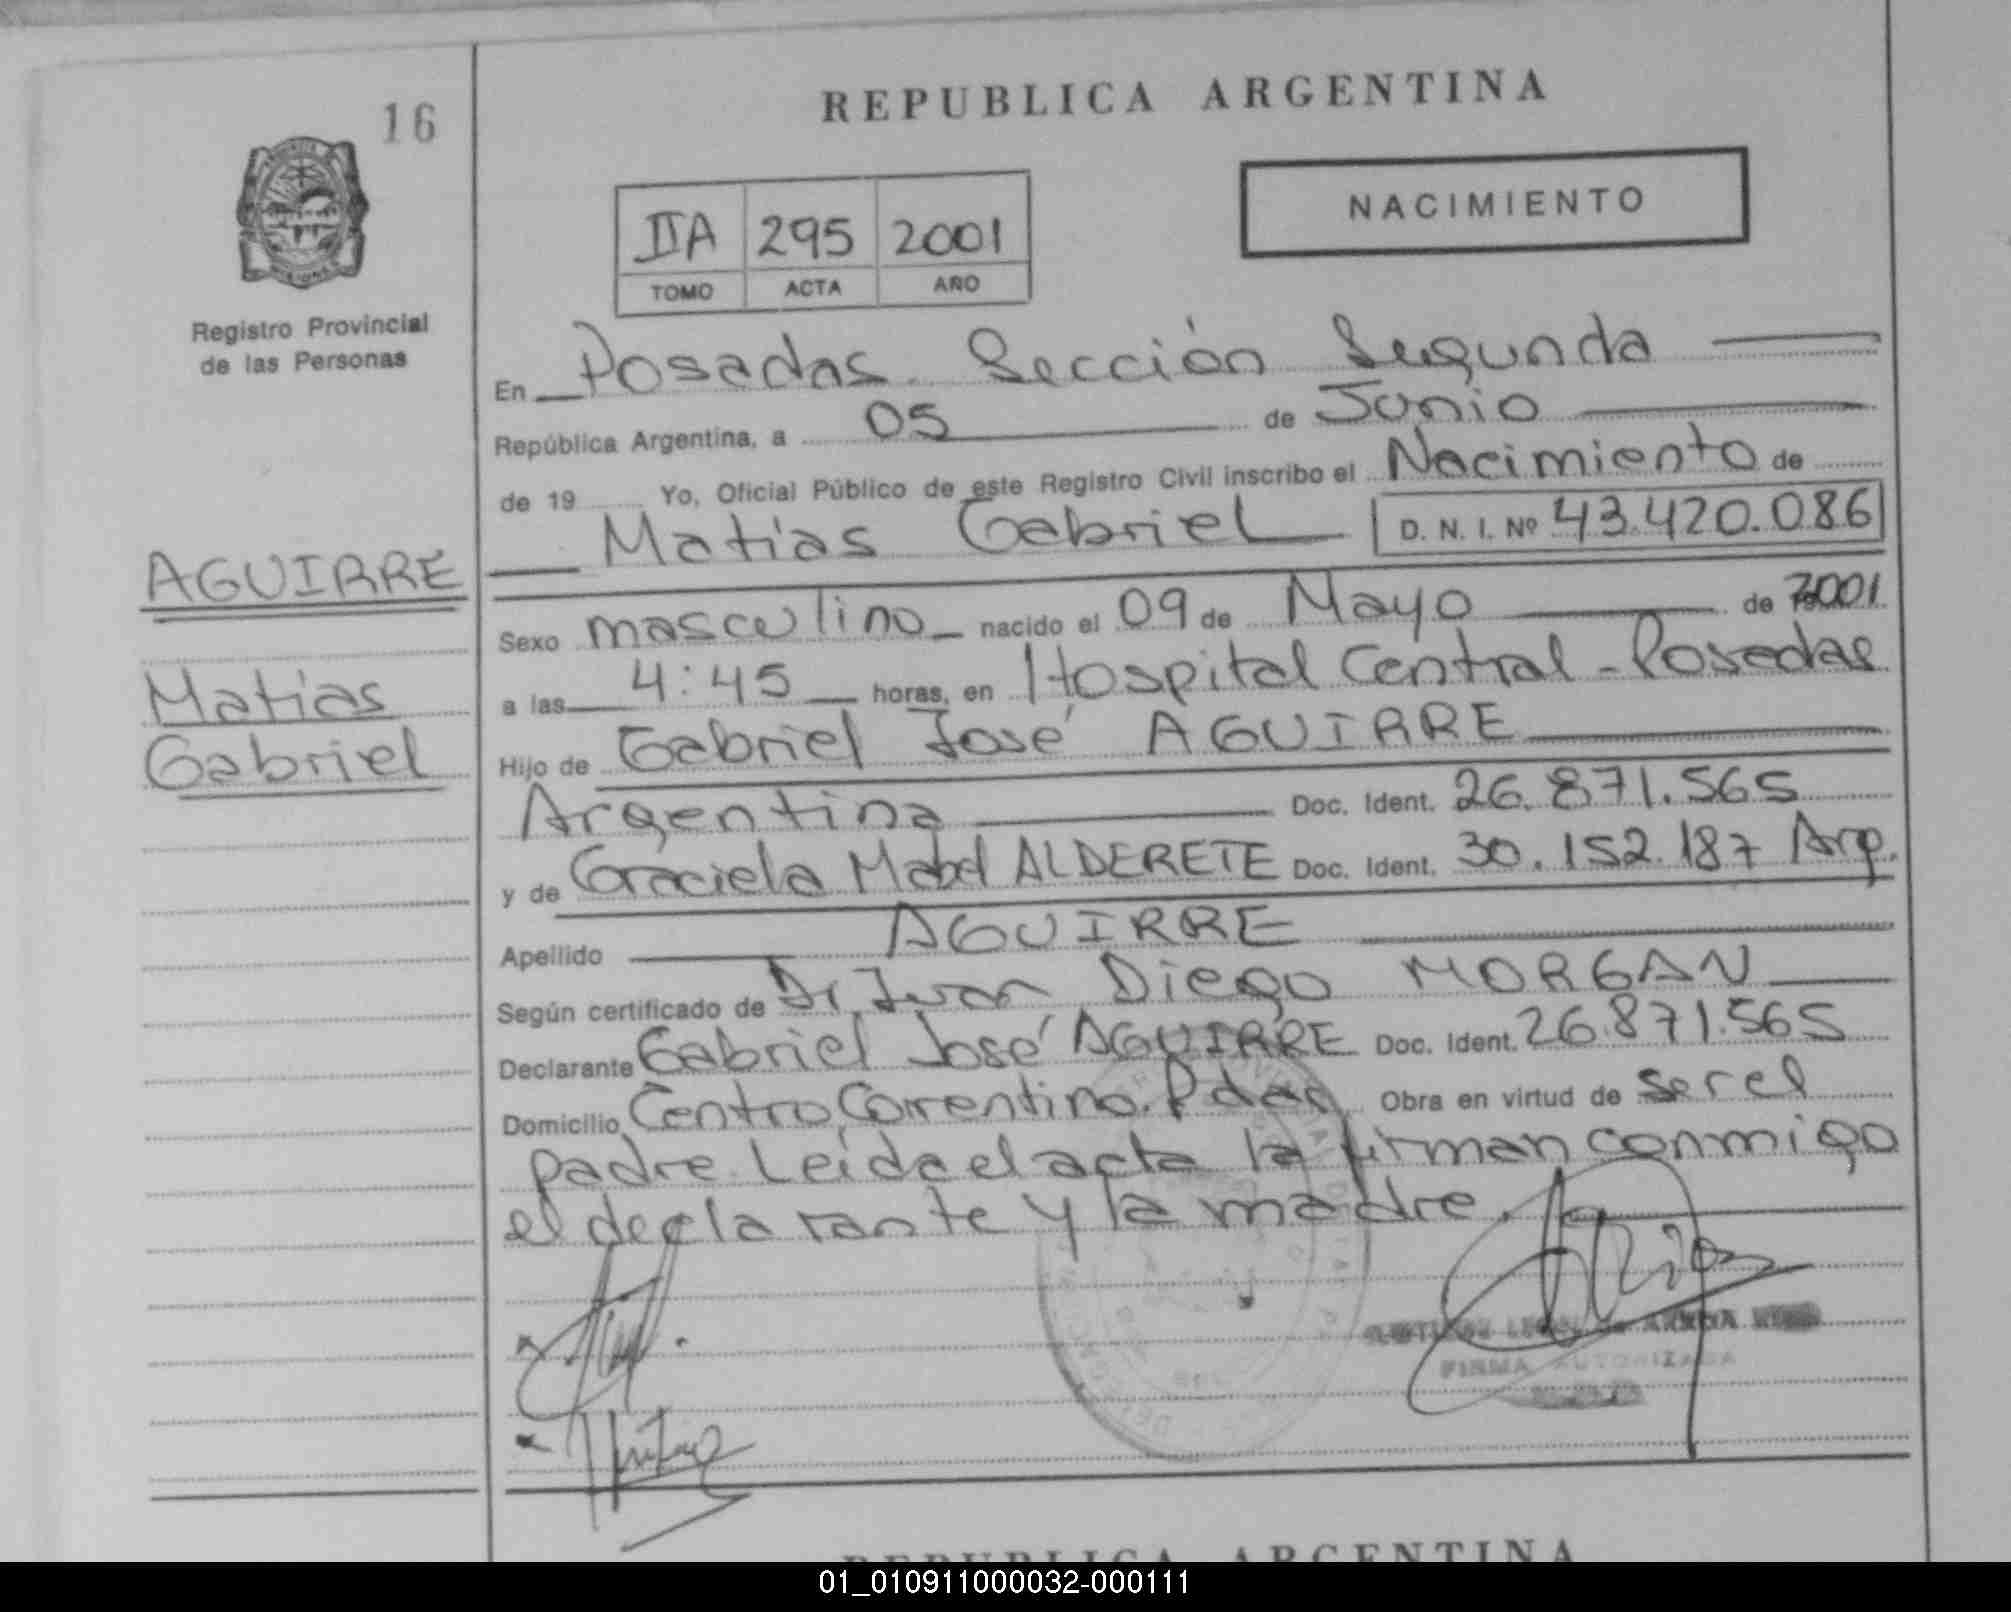 REPUBLICA ARGENTINA
16
NACIMIENTO
IIA 295 2001
TOMO ACTA AÑO
Registro Provincial
de las Personas
En Posadas Sección Segunda
República Argentina, a 05 de Junio
de 19 Yo, Oficial Público de este Registro Civil inscribo el Nacimiento de
Matias Gabriel D. N. I. Nº 43.420.086
AGUIRRE
Matias
Gabriel
Sexo masculino nacido el 09 de Mayo de 2001
a las 4:45 horas, en Hospital Central - Posadas
Hijo de Gabriel José AGUIRRE
Argentina Doc. Ident. 26.871.565
y de Graciela Mabel ALDERETE Doc. Ident. 30.152.187 Arg.
Apellido AGUIRRE
Según certificado de Dr Juan Diego MORGAN
Declarante Gabriel José AGUIRRE Doc. Ident. 26.871.565
Domicilio Centro Correntino. Pdas Obra en virtud de ser el
padre. Leida el acta la firman conmigo
el declarante y la madre.
FIRMA AUTORIZADA
REPUBLICA ARGENTINA
01_010911000032-000111